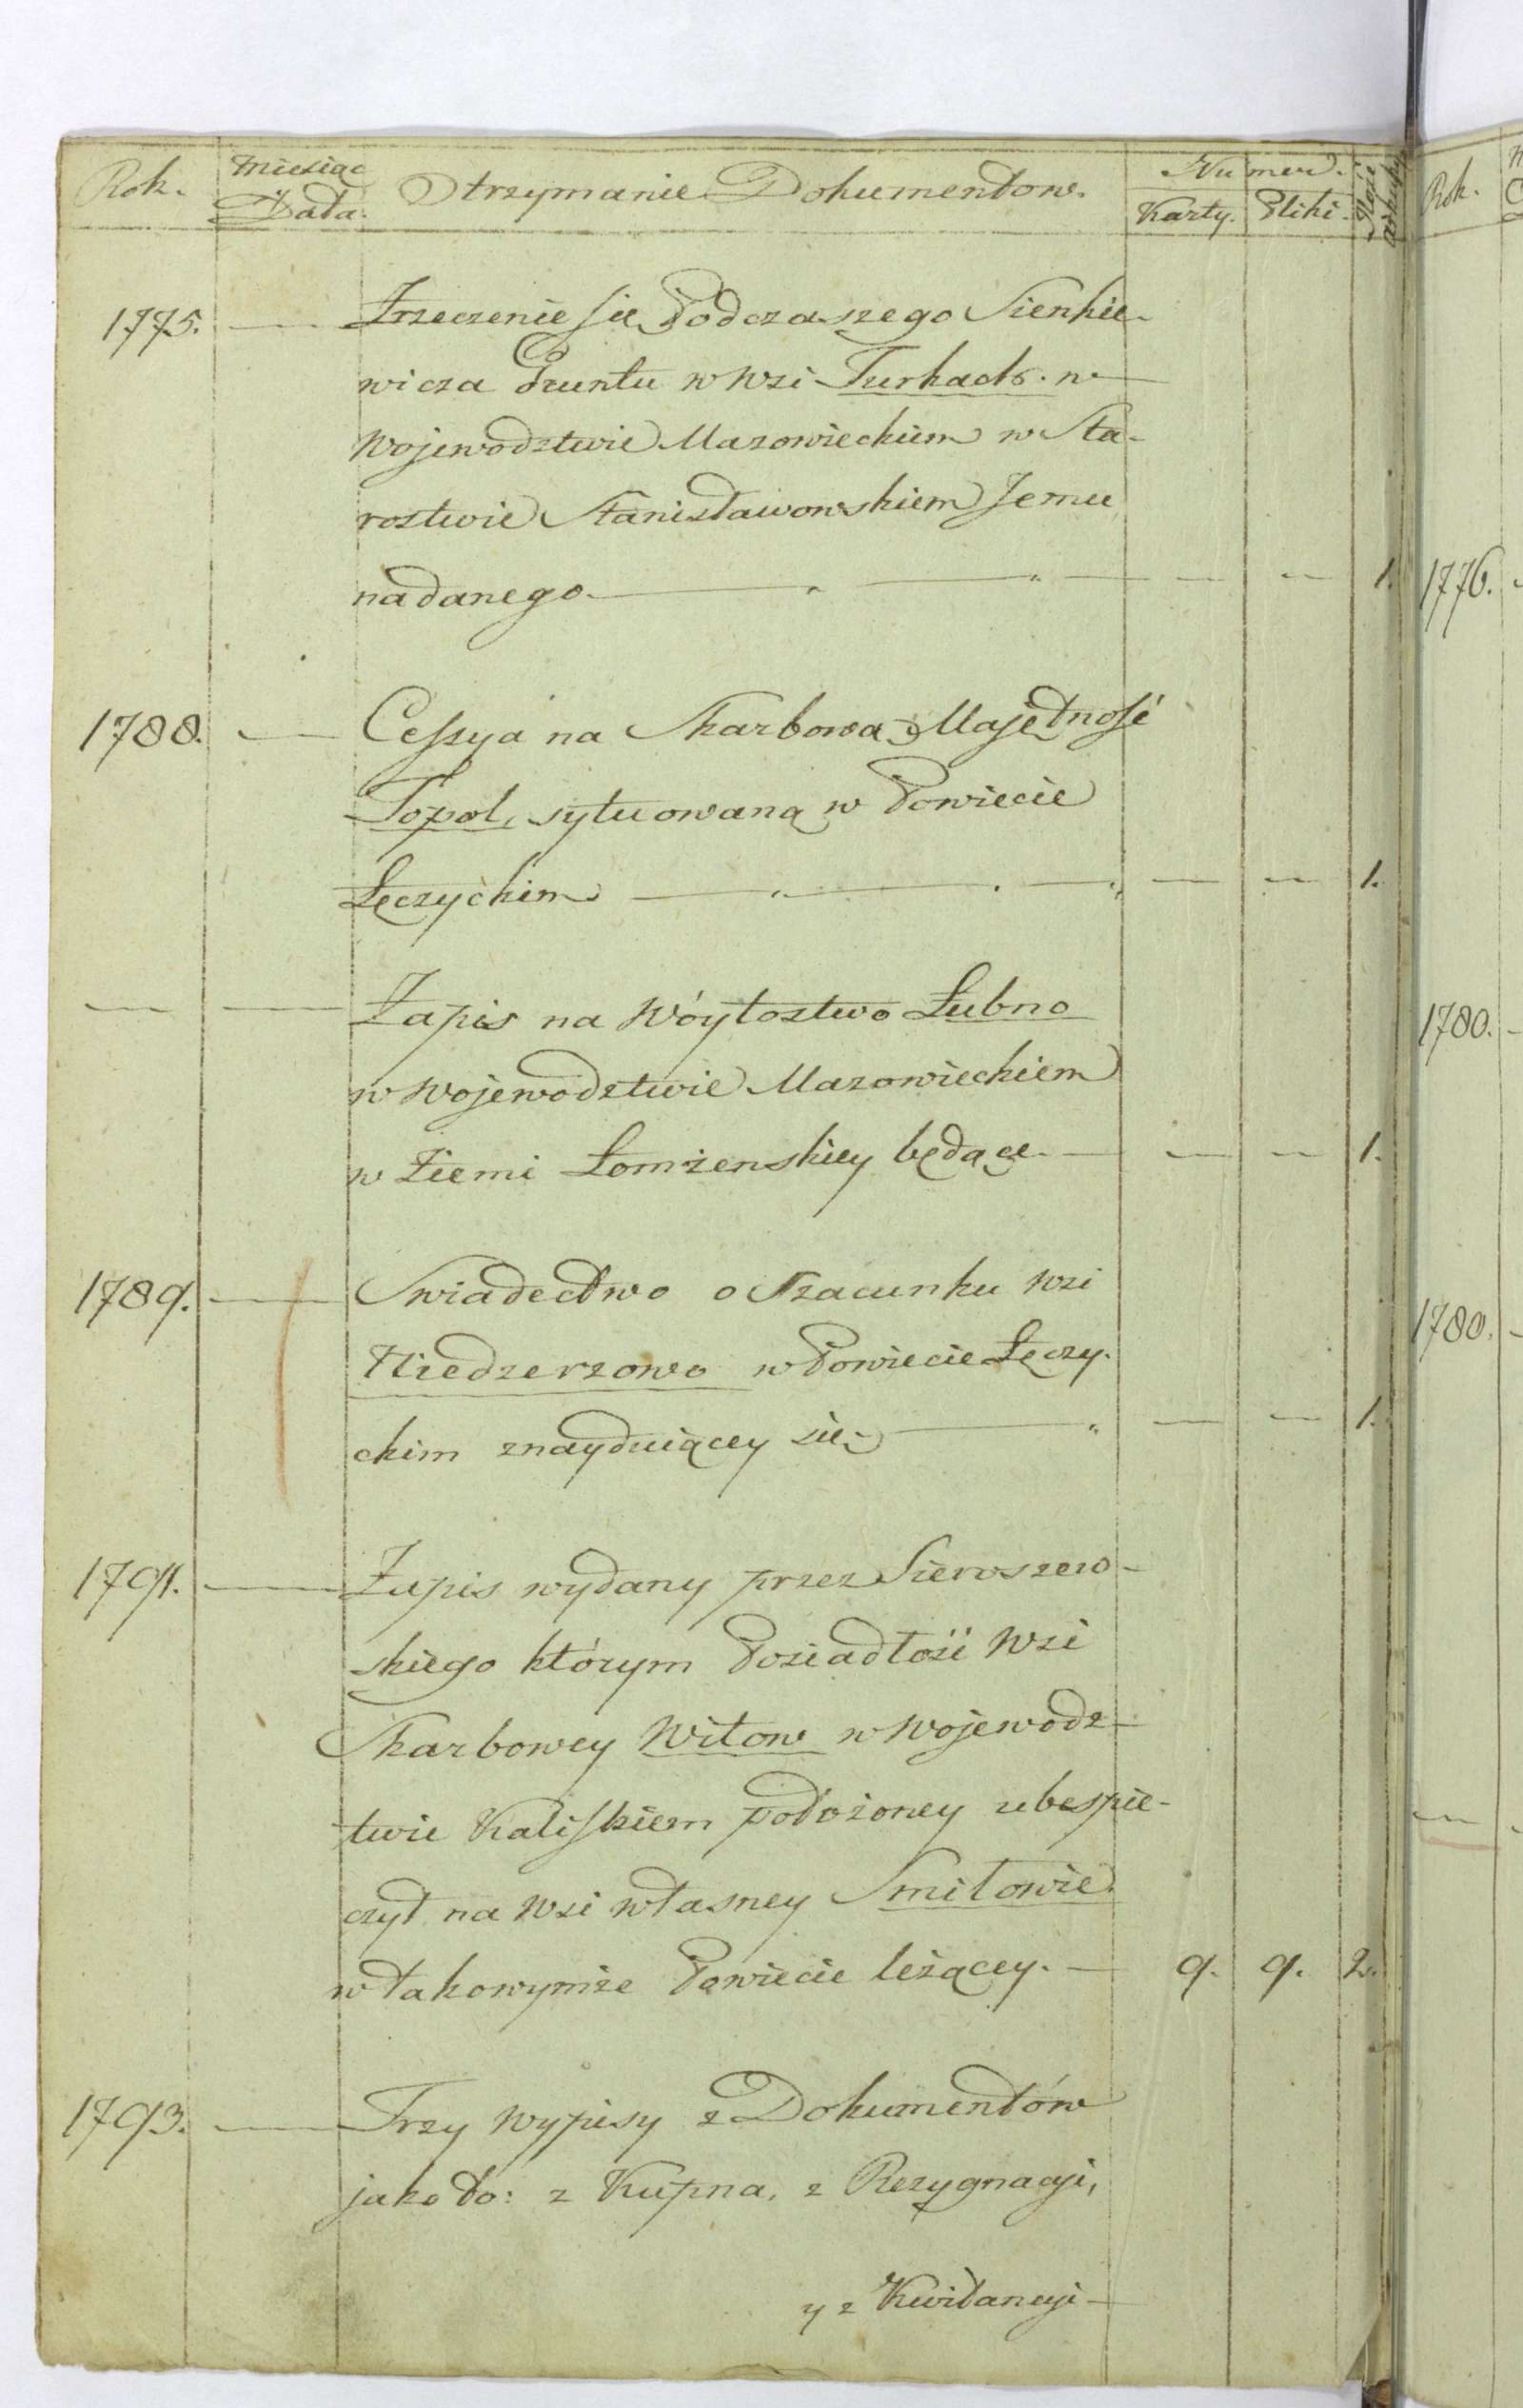 Rok. Miesiąc Numer.
Data. Otrzymanie Dokumentow. Karty. Pliki.
1775. — Zrzeczenie się Podczaszego Sienkie-
wicza Gruntu w wsi Turkach. w
Wojewodztwie Mazowieckiem w Sta-
rostwie Stanisławowskiem Jemu
nadanego. — — — 1.
1788. — Cessya na Skarbową Majętność
Topol, sytuowaną w Powiecie
Łęczyckim — — — 1.
— — Zapis na Wóytostwo Łubno
w Wojewodztwie Mazowieckiem
w Ziemi Łomżenskiey będące. — — — 1.
1789. — Swiadectwo o Szacunku wsi
Niedzerzowo w Powiecie Łęczy-
ckim znayduiącey się — — — 1.
1791. — Zapis wydany przez Sieroszew-
skiego którym Posiadłość wsi
Skarbowey Witow w Wojewodz-
twie Kaliskiem położoney ubespie-
czył na wsi własney Smiłowie
w takowymże Powiecie leżącey. — 9. 9. 2.
1793. — Trzy wypisy z Dokumentów
jako to: z Kupna, z Rezygnacyi,
y z Kwitancyi —
Rok.
1776.
1780.
1780.